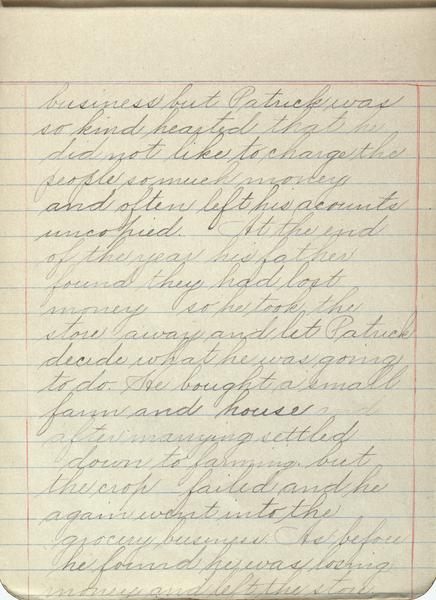 business but Patrick was
so kind hearted that he
did not like to charge the
people so much money
and often left his acounts
uncopied. At the end
of the year his father
found they had lost
money so he took the
store away and let Patrick
decide what he was going
to do. He bought a small
farm and house and
after marrying settled
down to farming but
the crop failed and he
again went into the
grocery business. As before
he found he was losing
money and left the store